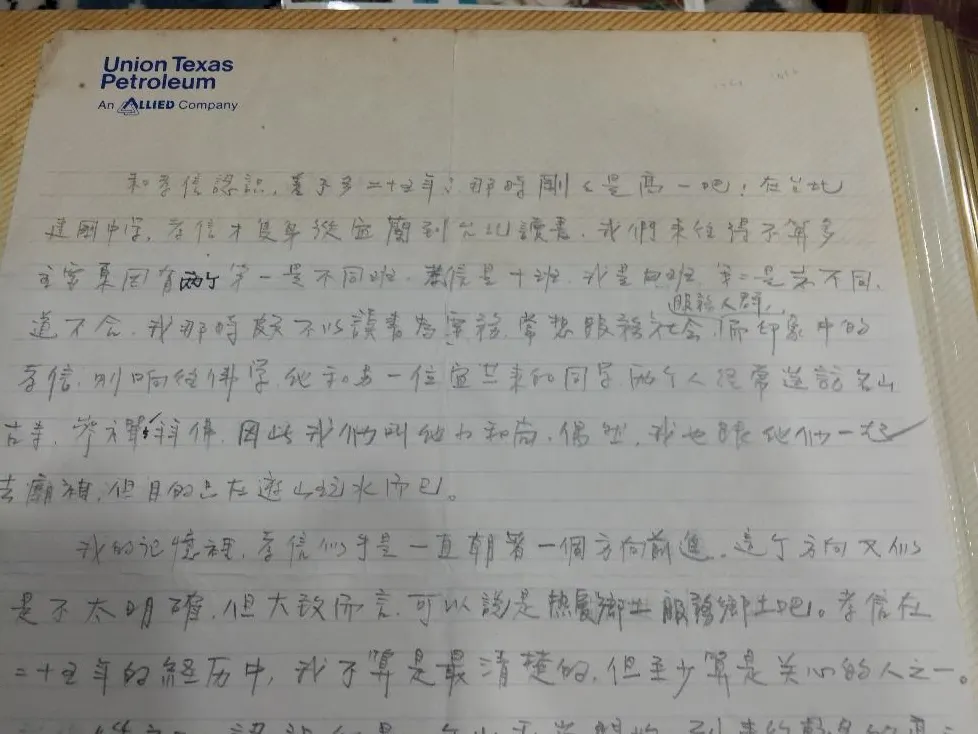 Union Texas
Petroleum
An ALLIED Company
和孝信認識,差不多二十五年了,那時剛剛是高一吧!在台北
建國中学,孝信才隻身從宜蘭到台北讀書,我們来往得不算多
主要原因有两个,第一是不同班,孝信是十班,我是四班,第二是志不同,
服務人群,
道不合,我那時候不以讀書為要務,常想服務社会,而印象中的
孝信,則响往佛学,他和另一位宜兰来的同学,两个人经常造訪名山
古寺,参禅拜佛,因此我们叫他小和尚,偶然,我也跟他们一起
去廟裡,但目的只在遊山玩水而已。
我的記憶裡,孝信似乎是一直朝著一個方向前進,這个方向又似
是不太明確,但大致而言,可以說是热愛鄉土服務鄉土吧。孝信在
二十五年的経历中,我不算是最清楚的,但至少算是关心的人之一。